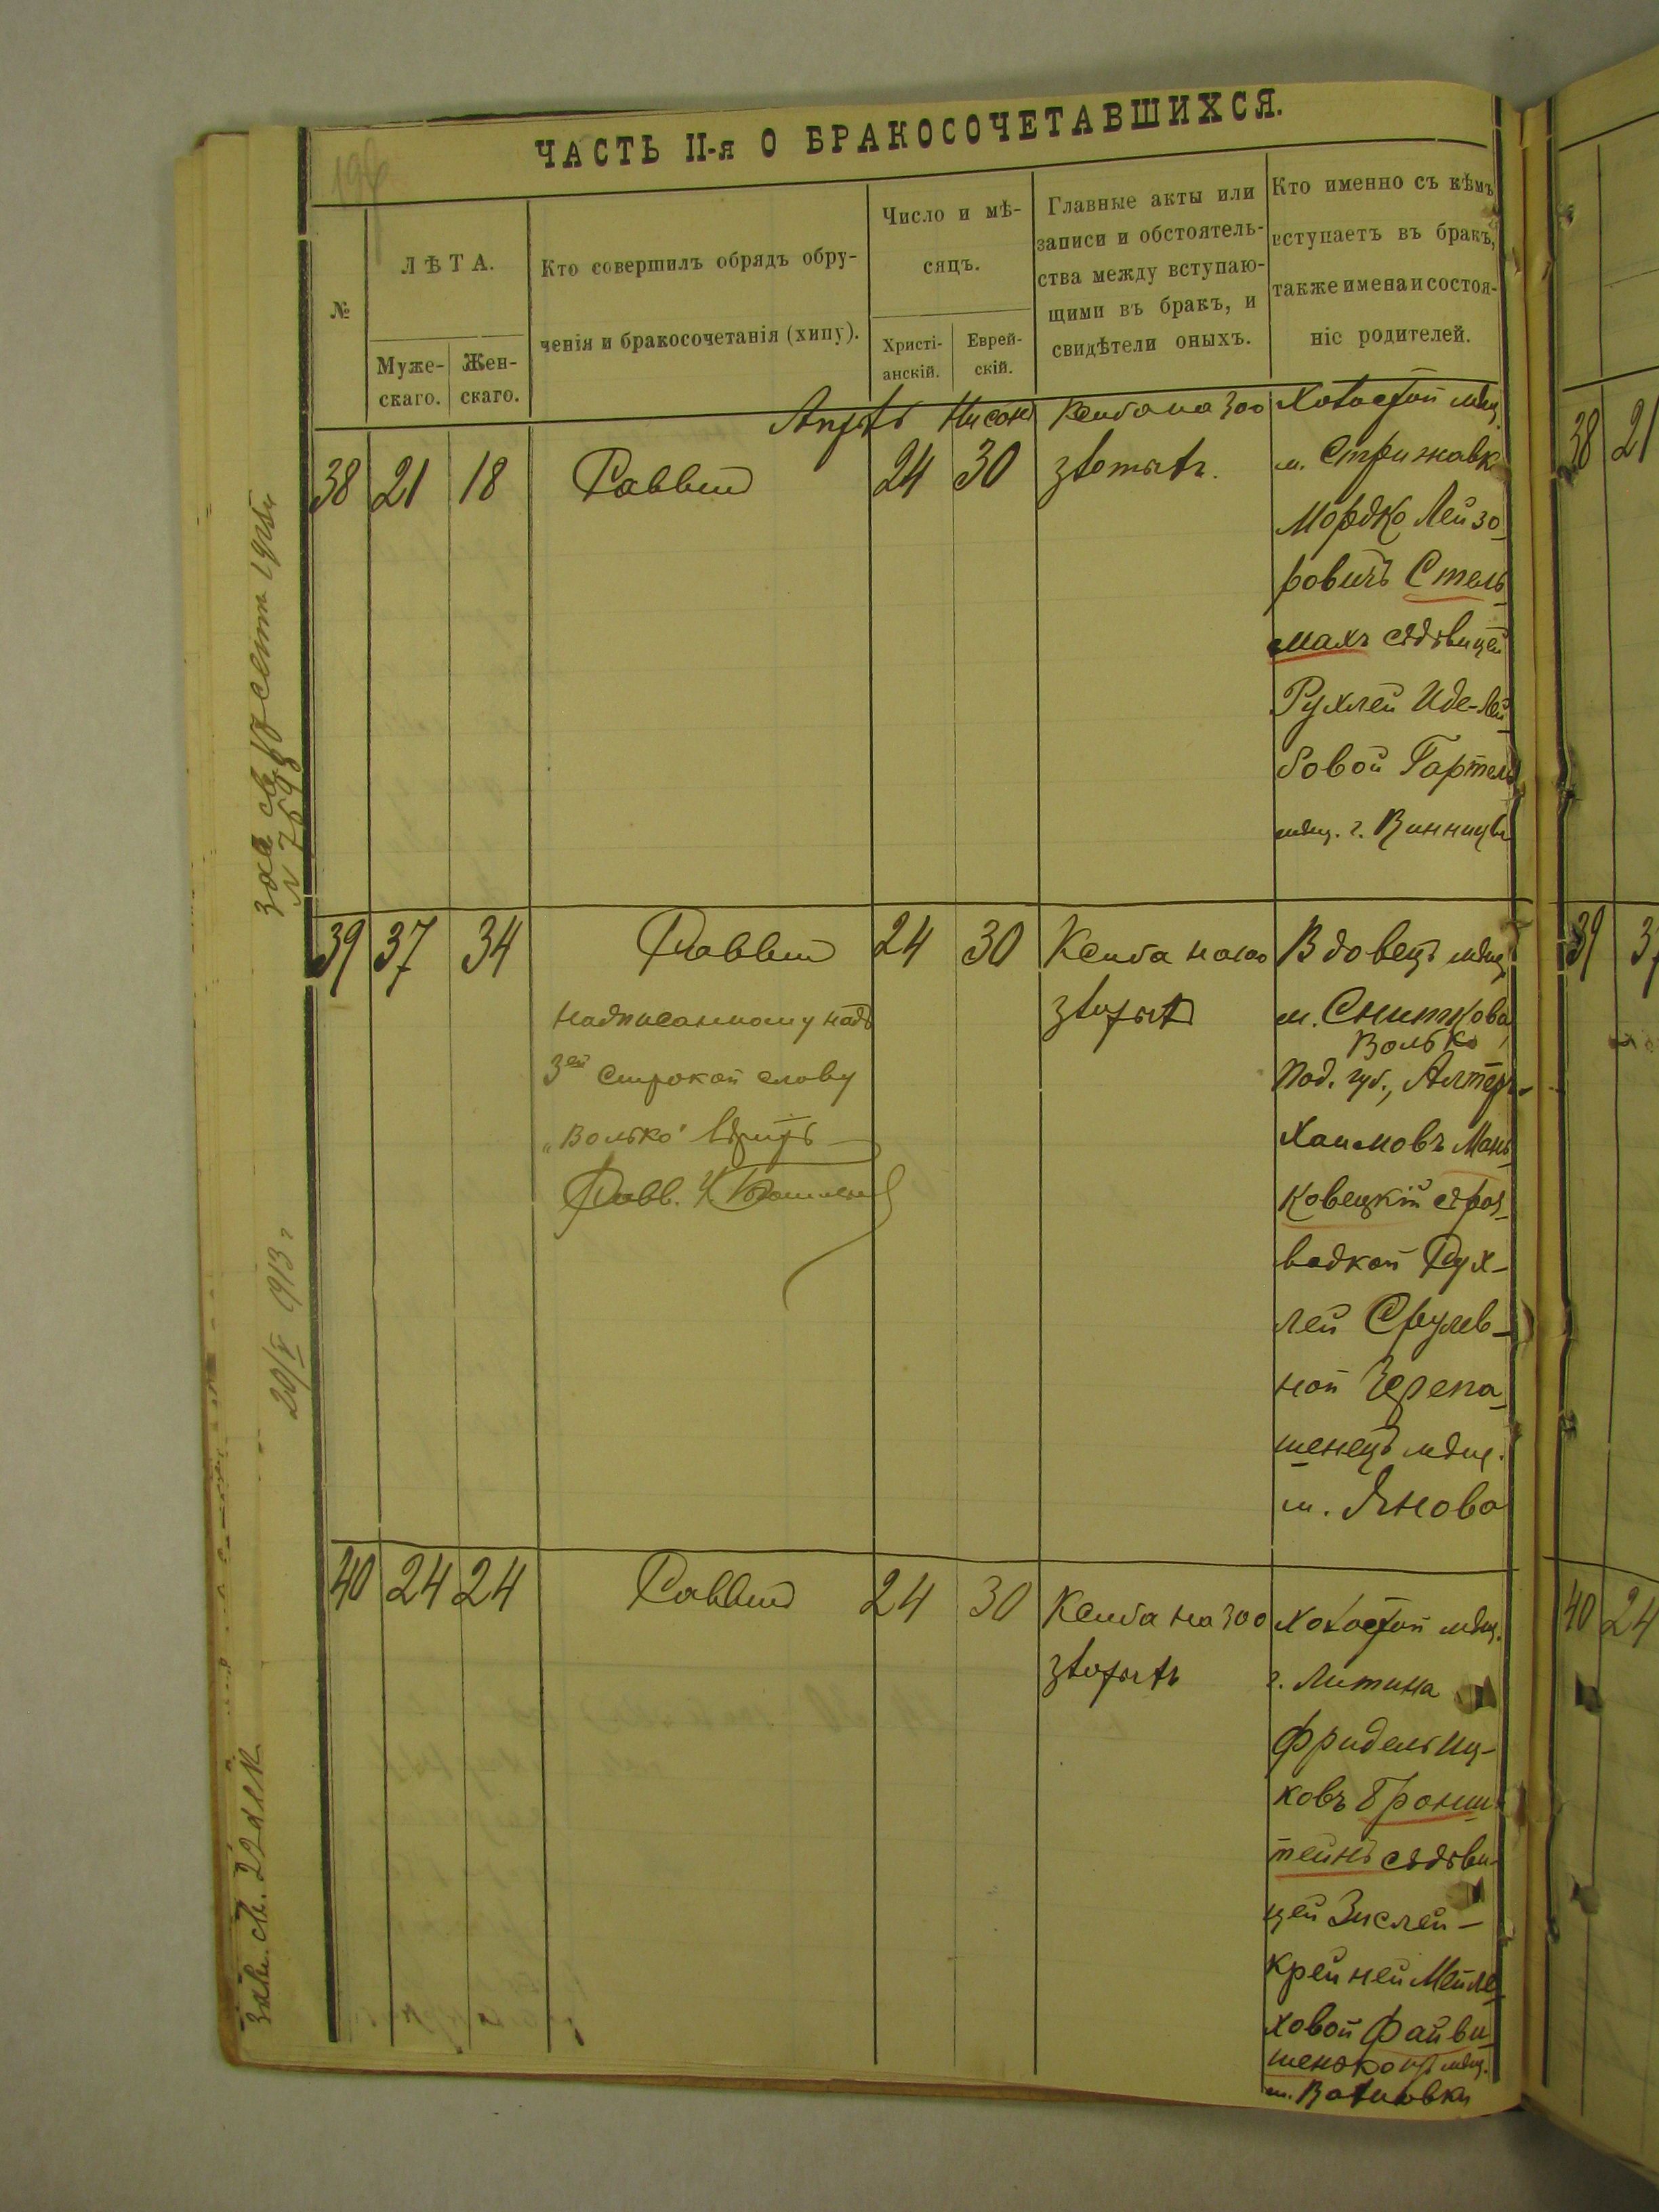 ЧАСТЬ II-я О БРАКОСОЧЕТАВШИХСЯ.
№
ЛѢТА.
Муже-
скаго.
Жен-
скаго.
Кто совершилъ обрядъ обру-
ченія и бракосочетанія (хипу).
Число и мѣ-
сяцъ.
Христі-
анскій.
Еврей-
скій.
Главные акты или
записи и обстоятель-
ства между вступаю-
щими въ бракъ, и
свидѣтели оныхъ.
Кто именно съ кѣмъ
вступаетъ въ бракъ,
также имена и состоя-
ніе родителей.
38 21 18
Раввин
Апрѣль Нисонъ
24 30
Ксиба на 300
злотыхъ.
Холостой мѣщ.
м. Стрижавк
Мордко Лейзо-
ровичъ Стель-
махъ съ дѣвицей
Рухлей Иде-Лей-
бовой Гартель
мѣщ. г. Винницы
39 37 34
Раввин
надписанному надъ
3ей строкой слову
„Волько" вѣрить
Равв.
24 30
Ксиба на 100
злотыхъ
Вдовецъ мѣщ.
м. Сниткова
Волько
Под. губ., Алтеръ-
Хаимовъ Мань-
ковецкій съ раз-
водкой Рух-
лей Срулев-
ной Черепа-
шенецъ мѣщ.
м. Янова
40 24 24
Раввин
24 30
Ксиба на 300
злотыхъ
Холостой мѣщ.
г. Литина
Фридель Иц-
ковъ Бронш-
тейнъ съ дѣви-
цей Зислей-
Крейней Мейле-
ховой Файви-
шенкоцъ мѣщ.
м.
сент
№ 7698
20/V 1913 г